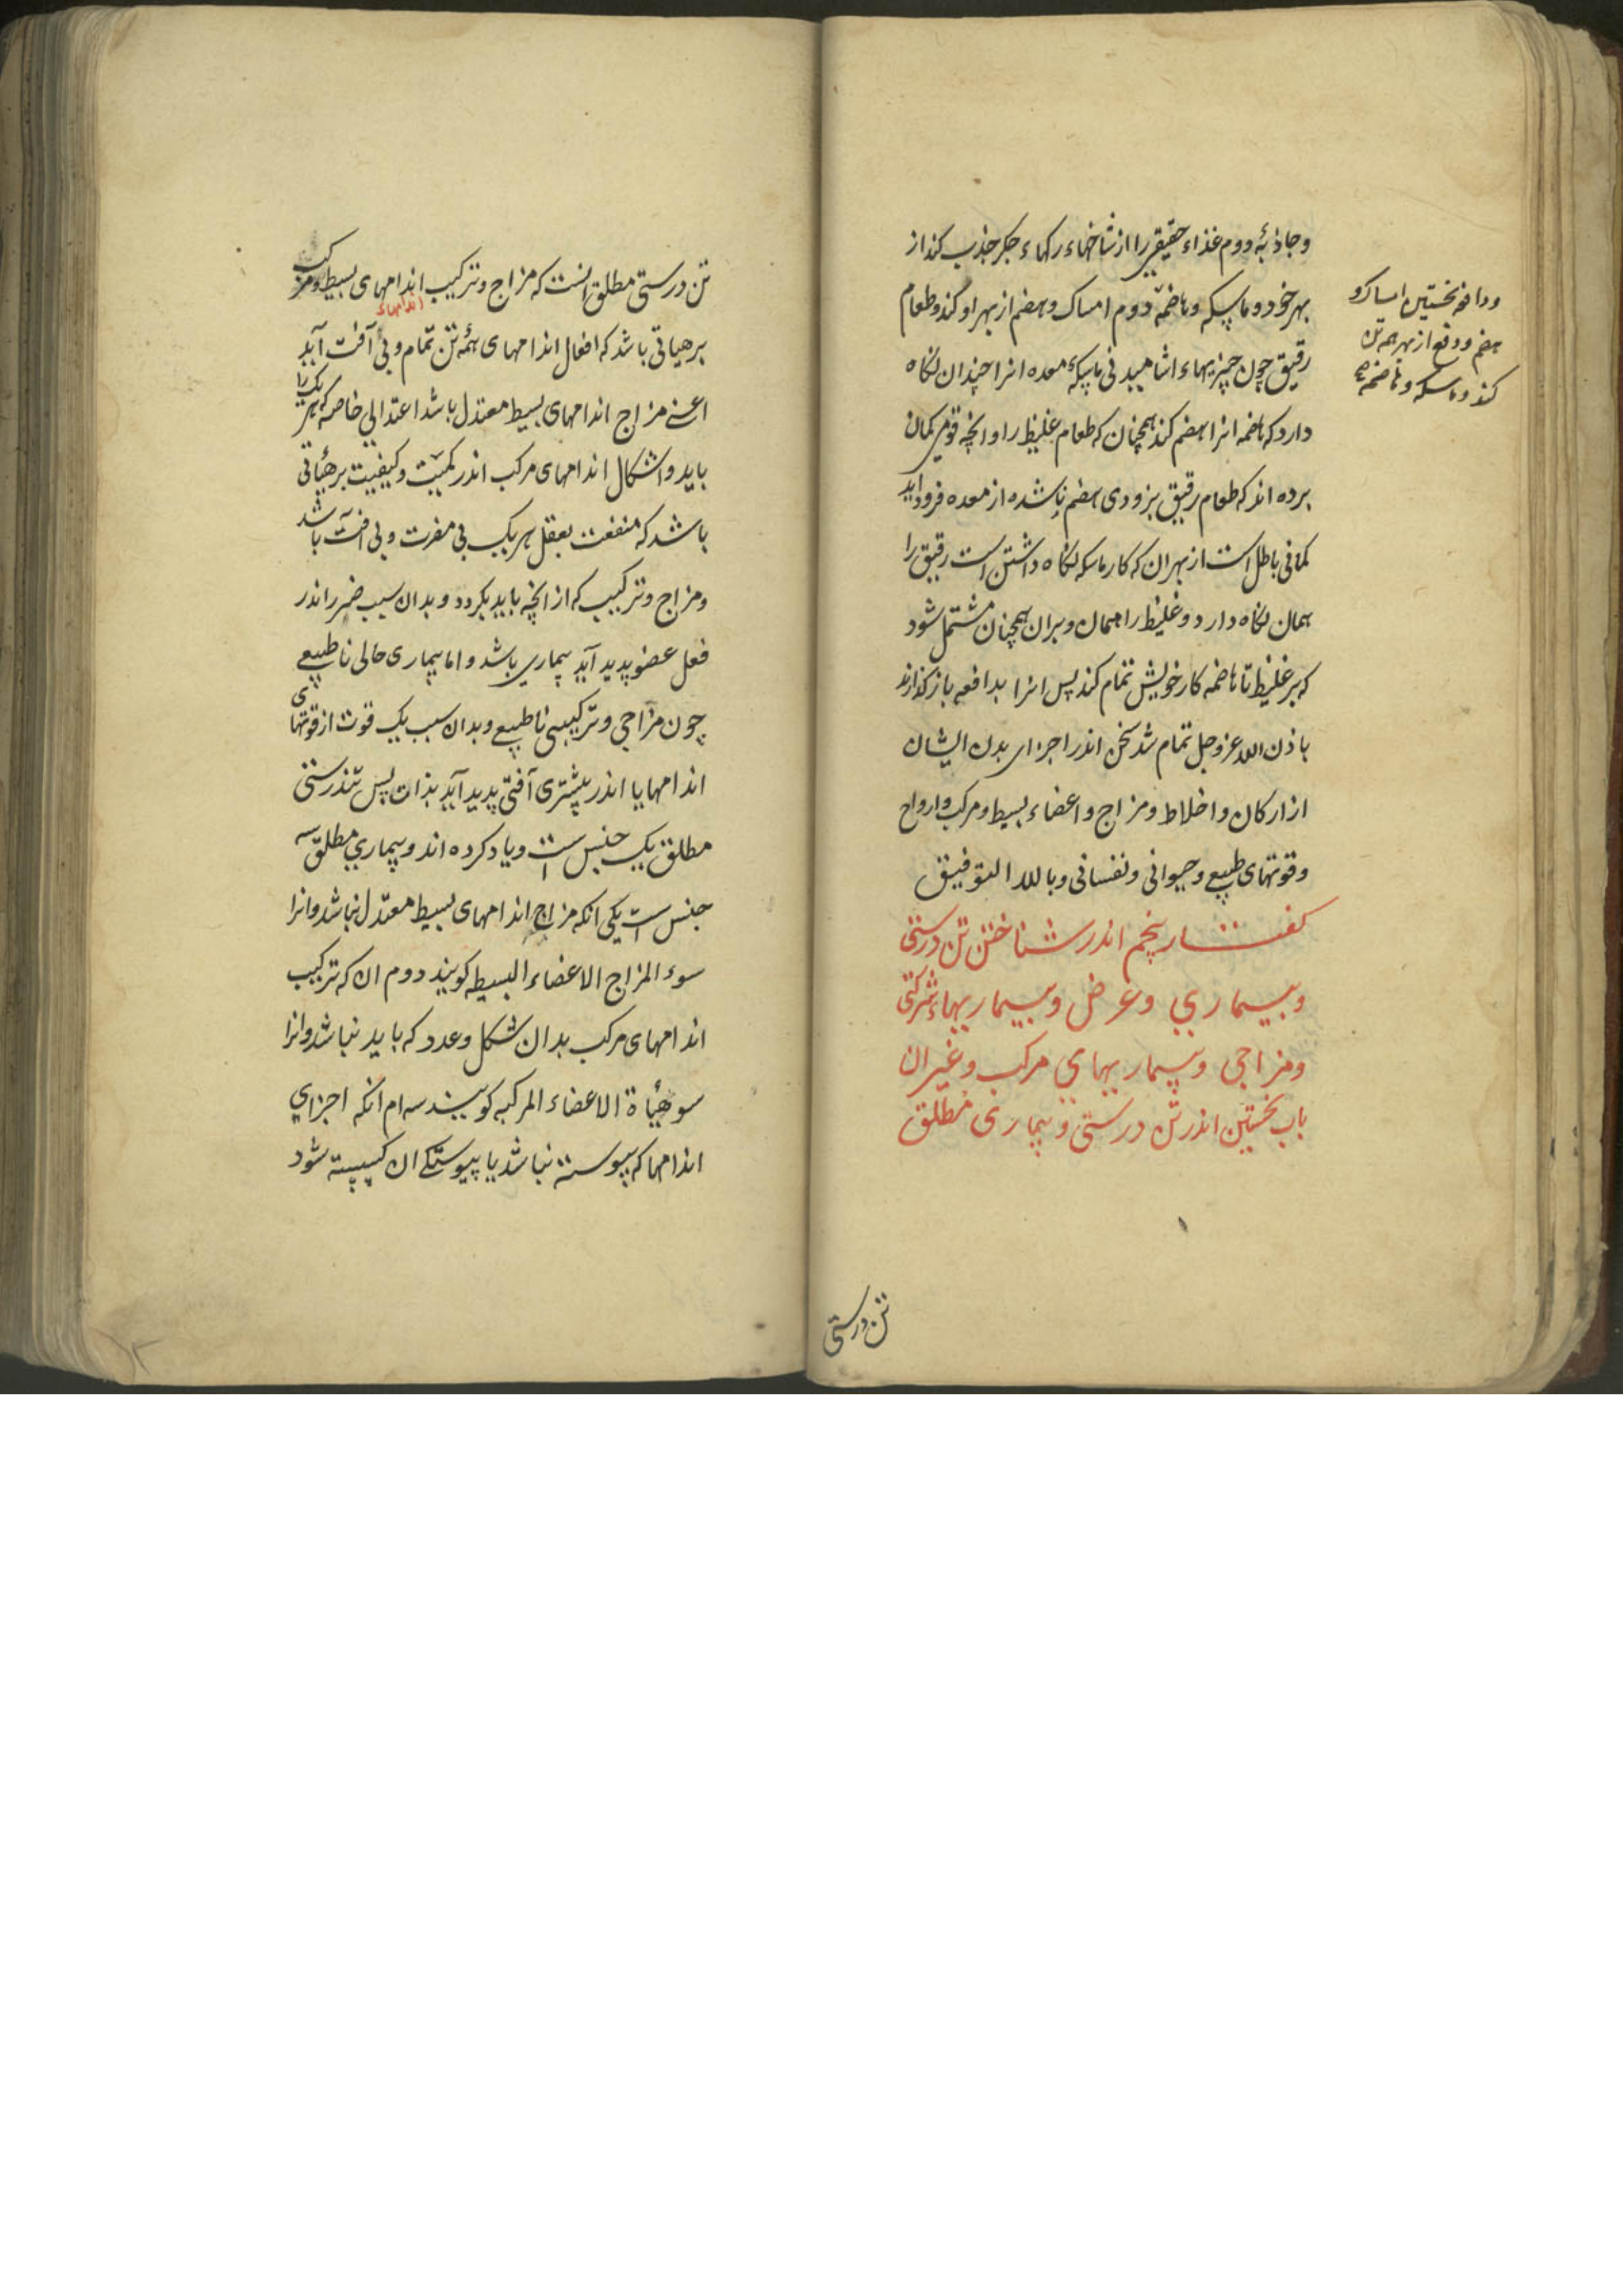 وجاذبهٔ دوم غذاء حقیقی را از شاخهاء رکهاء جکر جذب کند از
بهر خود و ماسکه و هاضمهٔ دوم امساک و هضم از بهر او کند و طعام
رقیق چون چیزیهاء اشامیدنی ماسکهٔ معده انرا چندان نکاه
دارد که هاضمه انرا هضم کند همچنان که طعام غلیظ را و انچه قومی کمان
برده اند که طعام رقیق بزودی هضم ناشده از معده فرود اید
کمانی باطل است از بهر ان که کار ماسکه نکاه داشتن است رقیق را
همان نکاه دارد و غلیظ را همان و بران همچنان مشتمل شود
که بر غلیظ تا هاضمه کار خویش تمام کند پس انرا بدافعه باز کذارند
باذن الله عز وجل تمام شد سخن اندر اجزاء بدن ایشان
از ارکان و اخلاط و مزاج و اعضاء بسیط و مرکب و ارواح
وقوتهای طبیعی وحیوانی ونفسانی وبالله التوفیق
کفتار پنجم اندر شناختن تن درستی
وبیماری وعرض وبیماریهاء شرکتی
ومزاجی وبیماریهای مرکب وغیر ان
باب نخستین اندر تن درستی وبیماری مطلق
ودافعه نخستین امساک و
هضم ودفع از بهر همه تن
کند وماسکه وهاضمه
تن درستی
تن درستی مطلق انست که مزاج وترکیب اندامهای بسیط ومرکب
اندامهاء
برهیاتی باشد که افعال اندامهای همهٔ تن تمام وبی آفت آید
اعنی مزاج اندامهای بسیط معتدل باشد اعتدالی خاصه که هر یک را
باید واشکال اندامهای مرکب اندر کمیّت وکیفیت برهیأتی
باشد که منفعت بعقل هر یک بی مضرت وبی آفت باشد
ومزاج وترکیب که از انچه باید بکردد وبدان سبب ضرر اندر
فعل عضو پدید آید بیماری باشد واما بیماری حالی ناطبیعی
چون مزاجی وترکیبی ناطبیعی وبدان سبب یک قوت از قوتهای
اندامها یا اندر بیشتری آفتی پدید آید بذات پس تندرستی
مطلق یک جنس است ویاد کرده اند وبیماری مطلق سه
جنس است یکی انکه مزاج اندامهای بسیط معتدل نباشد وانرا
سوء المزاج الاعضاء البسیطه کویند دوم ان که ترکیب
اندامهای مرکب بدان شکل وعدد که باید نباشد وانرا
سو هیأة الاعضاء المرکبه کویند سه ام انکه اجزای
اندامها که پیوسته نباشد یا پیوستکی ان کسسته شود